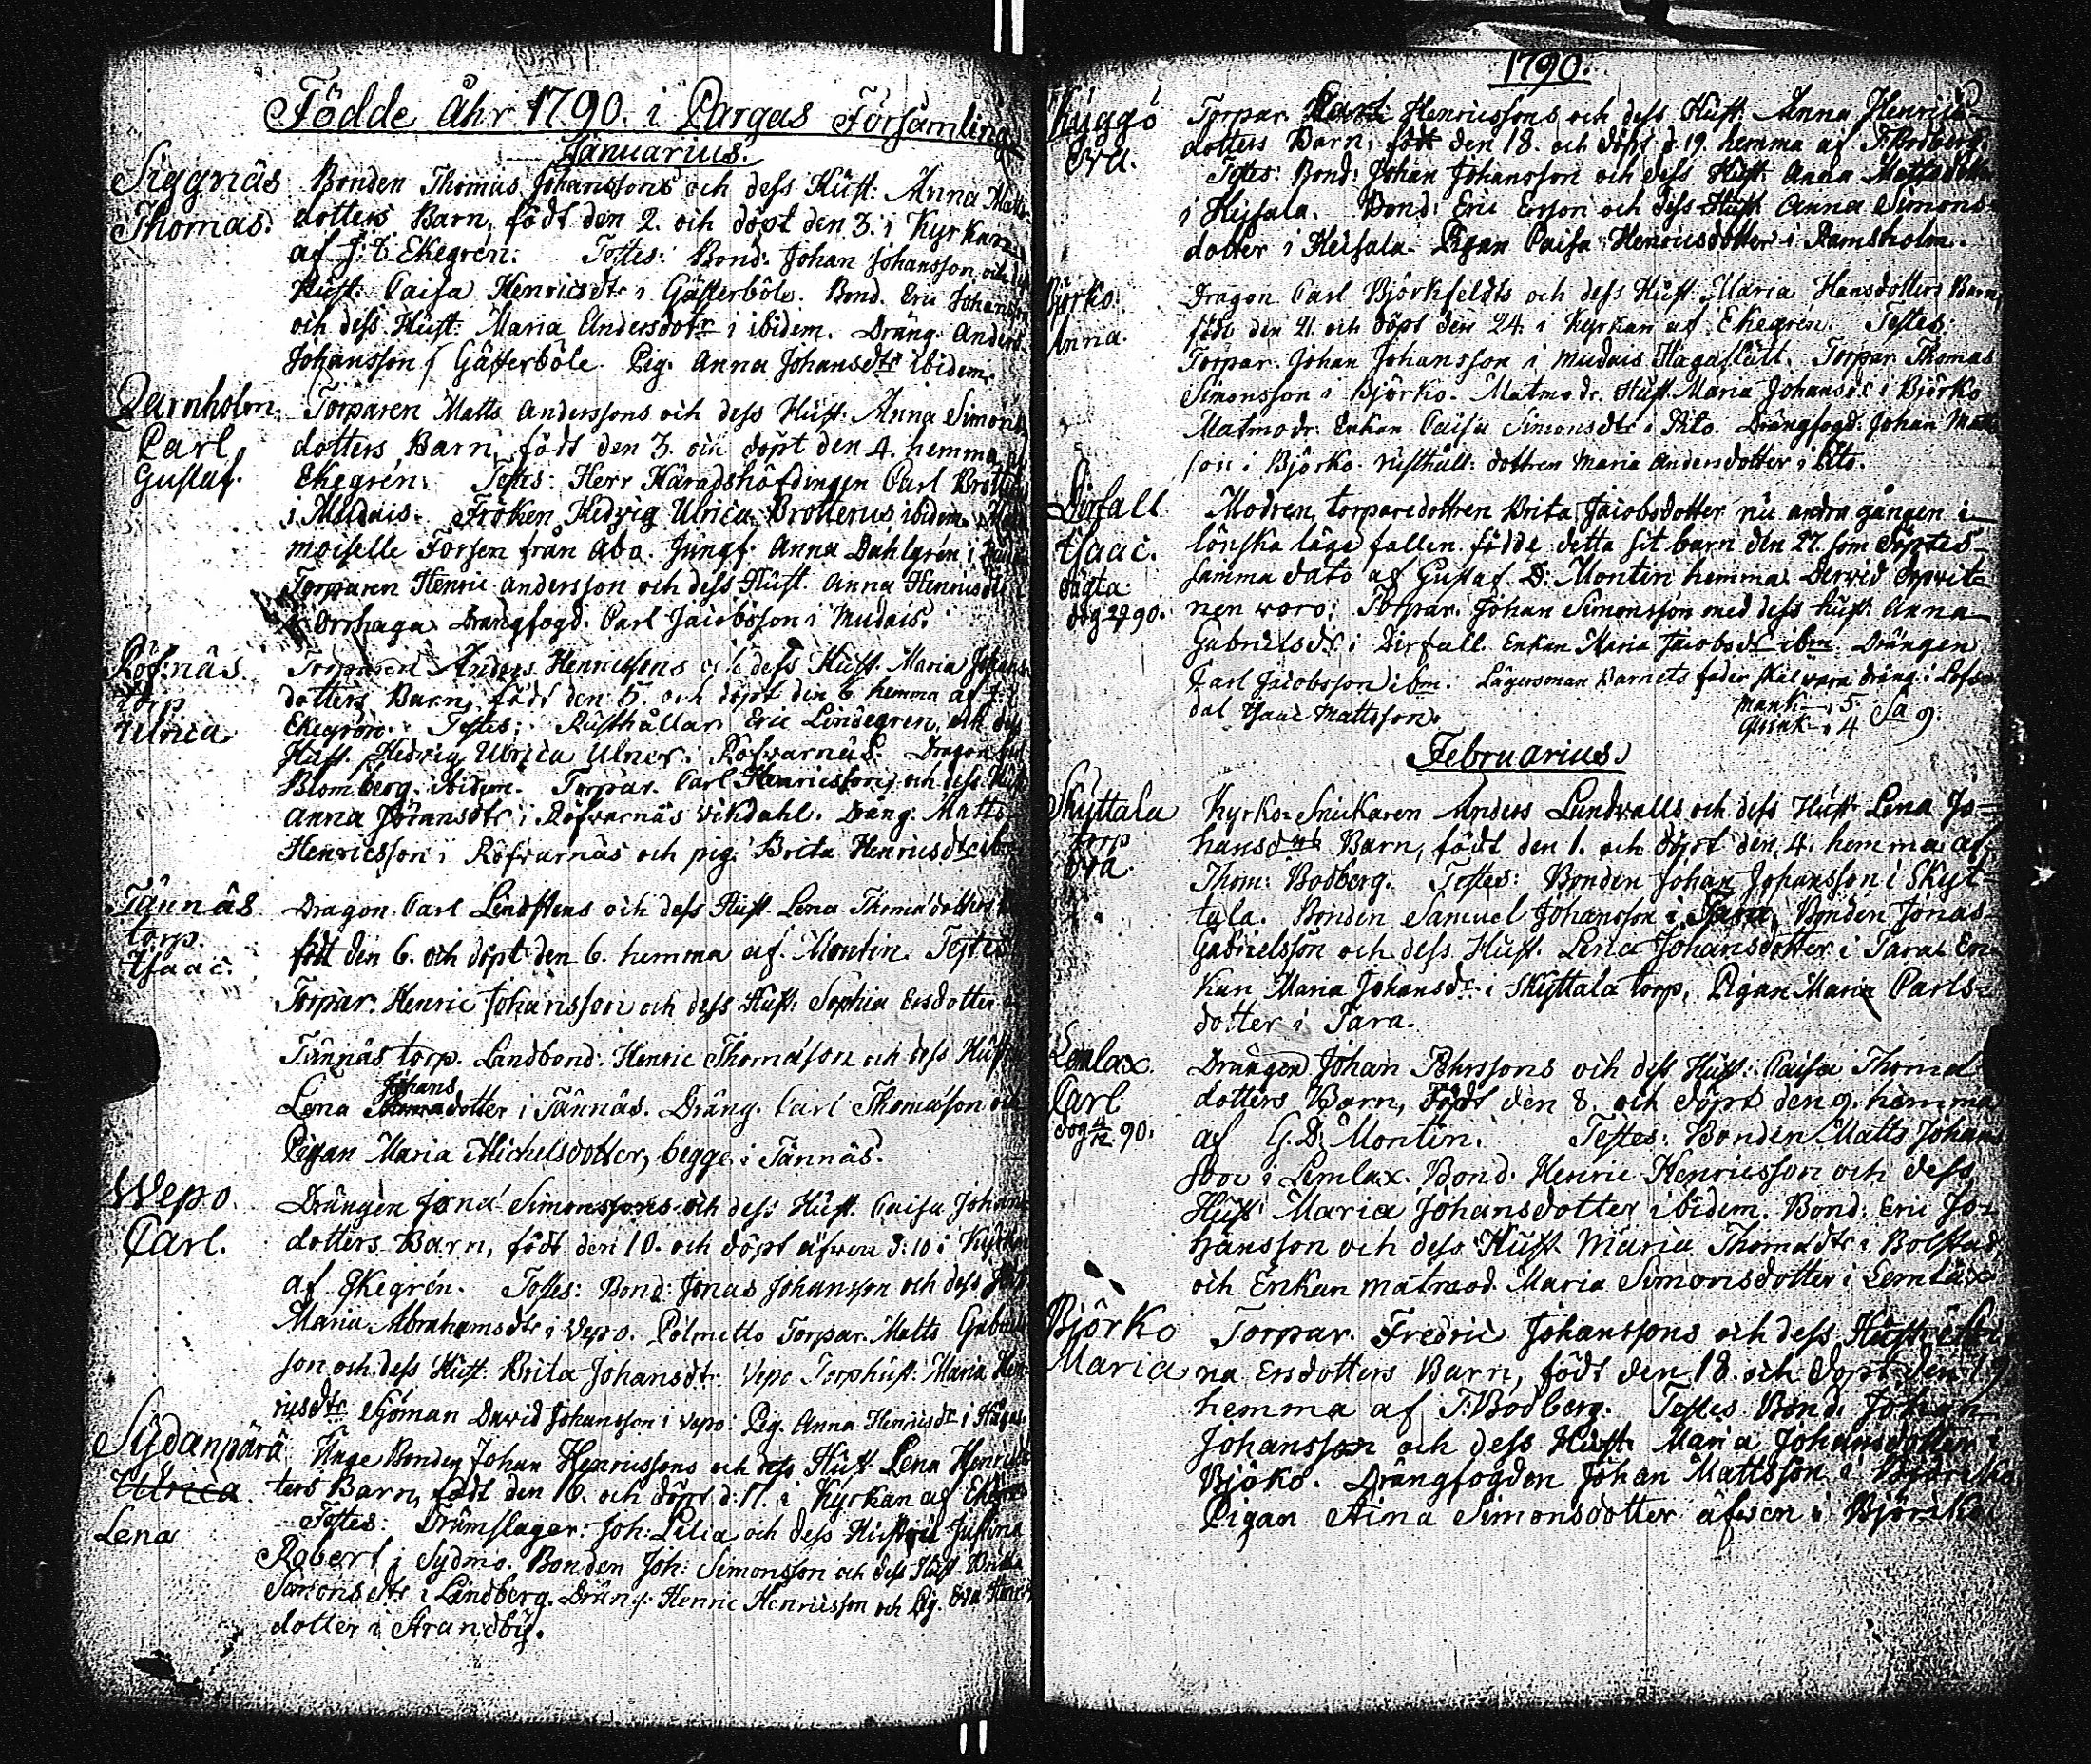 Födde åhr 1790. i Pargas Församling
Januarius.
Siggnäs Bonden Thomas Johanssons och dess Hust: Anna Matts-
Thomas. dotters Barn, födt den 2. och döpt den 3. i Kyrkan
af J: E: Ekegrén. Testes: Bond: Johan Johansson och dess
Hust: Caisa Henricsdtr i Gästerböle. Bond. Eric Johansson
och dess Hust: Maria Andersdotr i ibidem. Dräng. Anders
Johansson i Gästerböle Pig. Anna Johansdtr ibidem.
Parnholm. Torparen Matts Anderssons och dess Hust. Anna Simons
Carl dotters Barn, födt den 3. och döpt den 4. hemma af
Gustaf. Ekegrén. Testes: Herr Häradshöfdingen Carl Brotterus
i Mudais. Fröken Hedvig Ulrica Brotterus ibidem.
moiselle Forssen från Åbo. Jungf. Anna Dahlgrén i
Torparen Henric Andersson och dess Hust. Anna Henricsdtr
i Orrhaga Drängfogd. Carl Jacobsson i Mudais.
Röfnäs Torparen Anders Henricssons och dess Hust. Maria Johans
torp dotters Barn, födt den 5. och döpt den 6. hemma af J: E:
Ulrica Ekegrén. Testes: Rusthållar. Eric Lindegren och dess
Hust. Hedvig Ulrica Ulner i Röfvarnäs. Dragon
Blomberg ibidem. Torpar. Carl Henricsson, och dess Hust
Anna Jöransdtr i Röfvarnäs Vikdahl. Dräng. Matts
Henricsson i Röfvarnäs och pig. Brita Henricsdtr ibm
Tännäs Dragon. Carl Lindstens och dess Hust. Lena Thomædotters
torp. födt den 6. och döpt den 6. hemma af Montin. Testes
Isaac.
Torpar. Henric Johansson och dess Hust: Sophia Ersdotter
Tännäs torp. Landbond: Henric Thomasson och dess Hust
Johans
Lena Thomædotter i Tännäs. Dräng. Carl Thomasson och
Pigan Maria Michelsdotter, begge i Tännäs.
Wepo. Drängen Jonas Simonssons och dess Hust. Caisa Johans
Carl. dotters Barn, födt den 10. och döpt äfven d: 10 i Kyrkan
af Ekegrén. Testes: Bond: Jonas Johansson och dess Hust
Maria Abrahamsdtr i Vepo. Polmetto Torpar. Matts Gabriels
son och dess Hust. Brita Johansdtr. Vepo Torphust: Maria Hen-
ricsdtr Sjöman David Johansson i Vepo: Pig. Anna Henricsdtr i
Sydanpärä Unge Bonden Johan Henricssons och dess Hust Lena Henricsdot
Ulrica. ters Barn, födt den 16. och döpt d: 17. i Kyrkan af Ekegrén
Testes: Trumslagar. Joh: Lilia och dess Hustru Justina
Lena
Robert i Sydmo. Bonden Joh: Simonsson och dess Hust Brita
Simonsdtr i Lindberg. Dräng. Henric Henricsson och Pig. Eva Henrics
dotter i Strandby.
1790.
Kuggö Torpar. Carl Henricssons och dess Hust: Anna Henrics-
Eva. dotters Barn, födt den 18. och döpt d. 19. hemma af T: Bodberg.
Testes: Bond: Johan Johansson och dess Hust. Anna Mattsdotter
i Heisala. Bond: Eric Ersson och dess Hust Anna Simons-
dotter i Heisala. Pigan Caisa Henricsdotter i Ramsholm.
Björkö. Dragon Carl Björkfeldts och dess Hust: Maria Hansdotters Barn,
Anna. födt den 21. och döpt den 24. i Kyrkan af Ekegrén. Testes:
Torpar. Johan Johansson i Mudais Hagaslätt. Torpar Thomas
Simonsson i Björko. Matmodr. Hust. Maria Johansdr i Björko
Matmodr. Enkan Caisa Simonsdtr i Pito. Drängfogd. Johan Matts
son i Björko. rusthåll: dottren Maria Andersdotter i Pito.
Dirfall Modren, torparedottren Brita Jacobsdotter nu andra gången i
Isaac. lönska läge fallen födde detta sit barn den 27. som döptes
oägta samma dato af Gustaf D: Montin hemma. Dervid dopvit-
nen voro: Torpar. Johan Simonsson med dess hust. Anna
Gabrielsdr i Dirfall. Enkan Maria Jacobsdr ibm. Drängen
Carl Jacobsson ibm. Lägersman Barnets fader skal vara dräng i Lofs-
dal Isaac Mattsson.
Mank. 5.
Qvink. 4 Sa 9.
Februarius.
Skyttala Kyrko-Snickaren Anders Lundvalls och dess Hust Lena Jo-
torp hansdotrs Barn, födt den 1. och döpt den 4. hemma af
Eva. Thom: Bodberg. Testes: Bonden Johan Johansson i Skyt-
tala. Bonden Samuel Johansson i Tara, Bonden Jonas
Gabrielsson och dess Hust. Lena Johansdotter i Tara. En-
kan Maria Johansdr i Skyttala torp, Pigan Maria Carls-
dotter i Tara.
Lemlax. Drängen Johan Pehrssons och dess Hust: Caisa Thomæ
Carl dotters Barn, Födt den 8. och döpt den 9. hemma
af G. D: Montin. Testes: Bonden Matts Johans
son i Lemlax. Bond: Henric Henricsson och dess
Hust Maria Johansdotter ibidem. Bond: Eric Jo-
hansson och dess Hust. Maria Thomædtr i Bolstad,
och Enkan matmod. Maria Simonsdotter i Lemlax
Björko Torpar. Fredric Johanssons och dess Hust
Maria na Ersdotters Barn, födt den 18. och döpt den 19
hemma af T: Bodberg. Testes Bond: Johan
Johansson och dess Hust: Maria Johansdotter i
Bjöko. Drängfogden Johan Mattsson i Björko
Pigan Stina Simonsdotter äfven i Björko